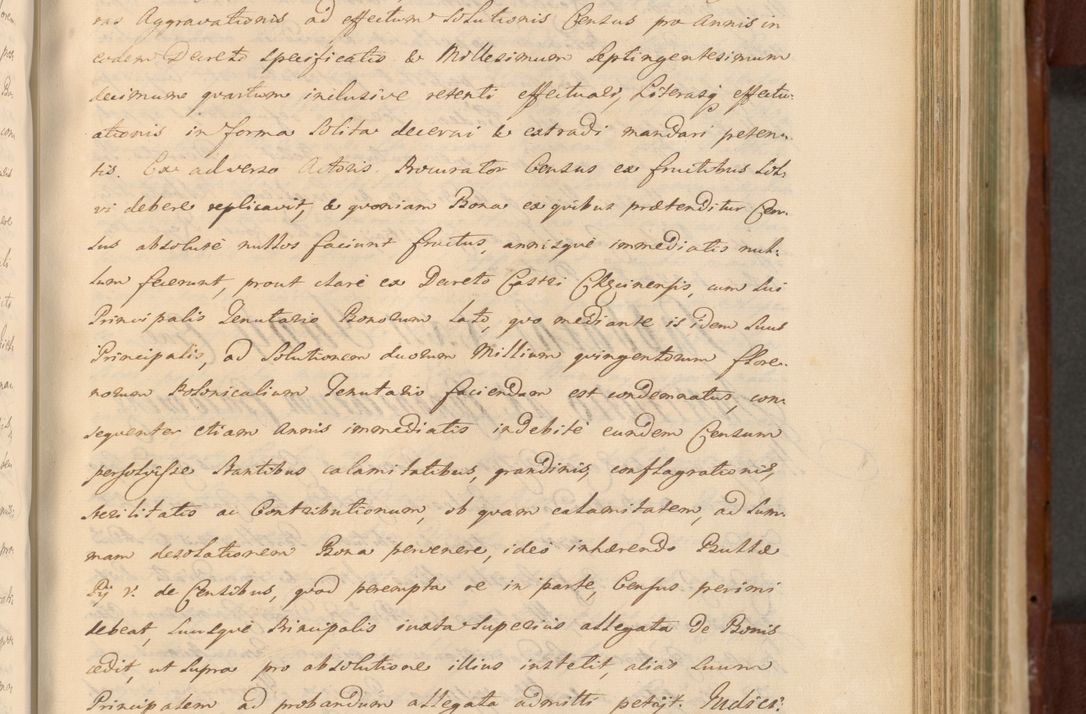 ras Aggravationis ad effectum Solutionis Census pro Annis in
eodem Decreto specificatis & Millesimum Septingentesimum
decimum quartum inclusive retenti effectuali, Literasq effectu-
ationis in forma Solita decerni & extradi mandari peten-
tis. Ex adverso Actoris Procurator Census ex fructibus Sol-
vi debere replicavit, & quoniam Bona ex quibus prætenditur Cen-
sus absoluté nullos faciunt fructus, annisqué immediatis nul-
lum fecerunt, prout claré ex Decreto Castri Chęcinensis, cum sui
Principalis Tenutario Bonorum lato, quo mediante is idem Suus
Principalis, ad Solutionem duorum Millium quingentorum flore-
norum Polonicalium Tenutario faciendam est condemnatus, con-
sequenter etiam Annis immediatis indebité eundem Censum
persolvisse stantibus calamitatibus, grandinis, conflagrationis,
sterilitatis ac Contributionum, ob quam calamitatem, ad Sum-
mam desolationem Bona pervenere, ideo inhærendo Bullæ
Pij v. de Censibus, quod perempta re in parte, Census perimi
debeat, Suusqué Principalis iuxta Superius allegata de Bonis
cedit, ut supra pro absolutione illius institit, alias Suum
Principalem ad probandum allegata admitti petijt. Iudici: